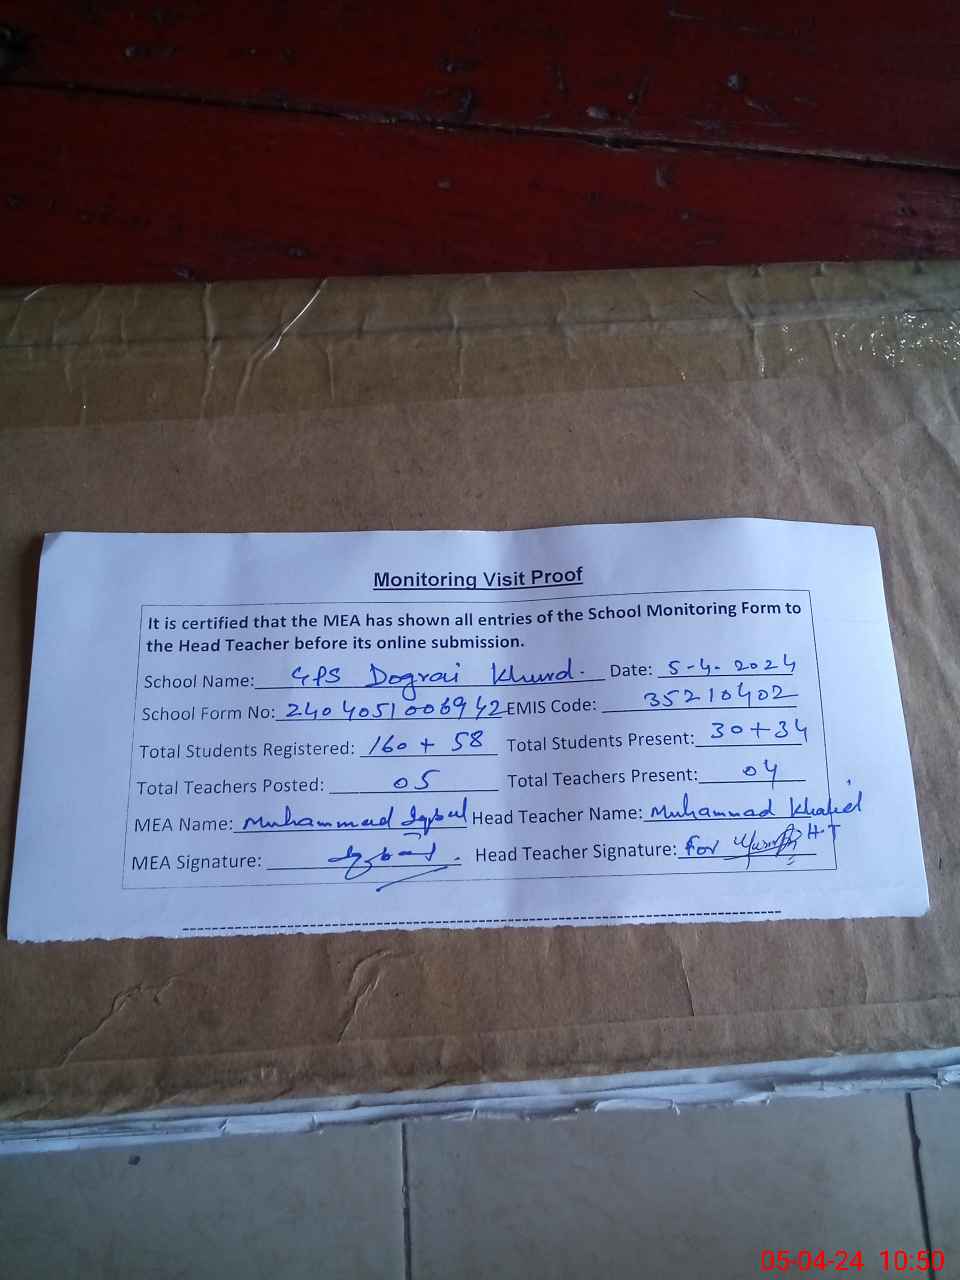 Monitoring Visit Proof
It is certified that the MEA has shown all entries of the School Monitoring Form to
the Head Teacher before its online submission.
School Name: GPS Dograi Khurd. Date: 5-4-2024
School Form No: 2404051006942 EMIS Code: 35210402
Total Students Registered: 160 + 58 Total Students Present: 30+34
Total Teachers Posted: 05 Total Teachers Present: 04
MEA Name: Muhammad Iqbal Head Teacher Name: Muhammad Khalid
MEA Signature: Iqbal. Head Teacher Signature: For H.T
05-04-24 10:50